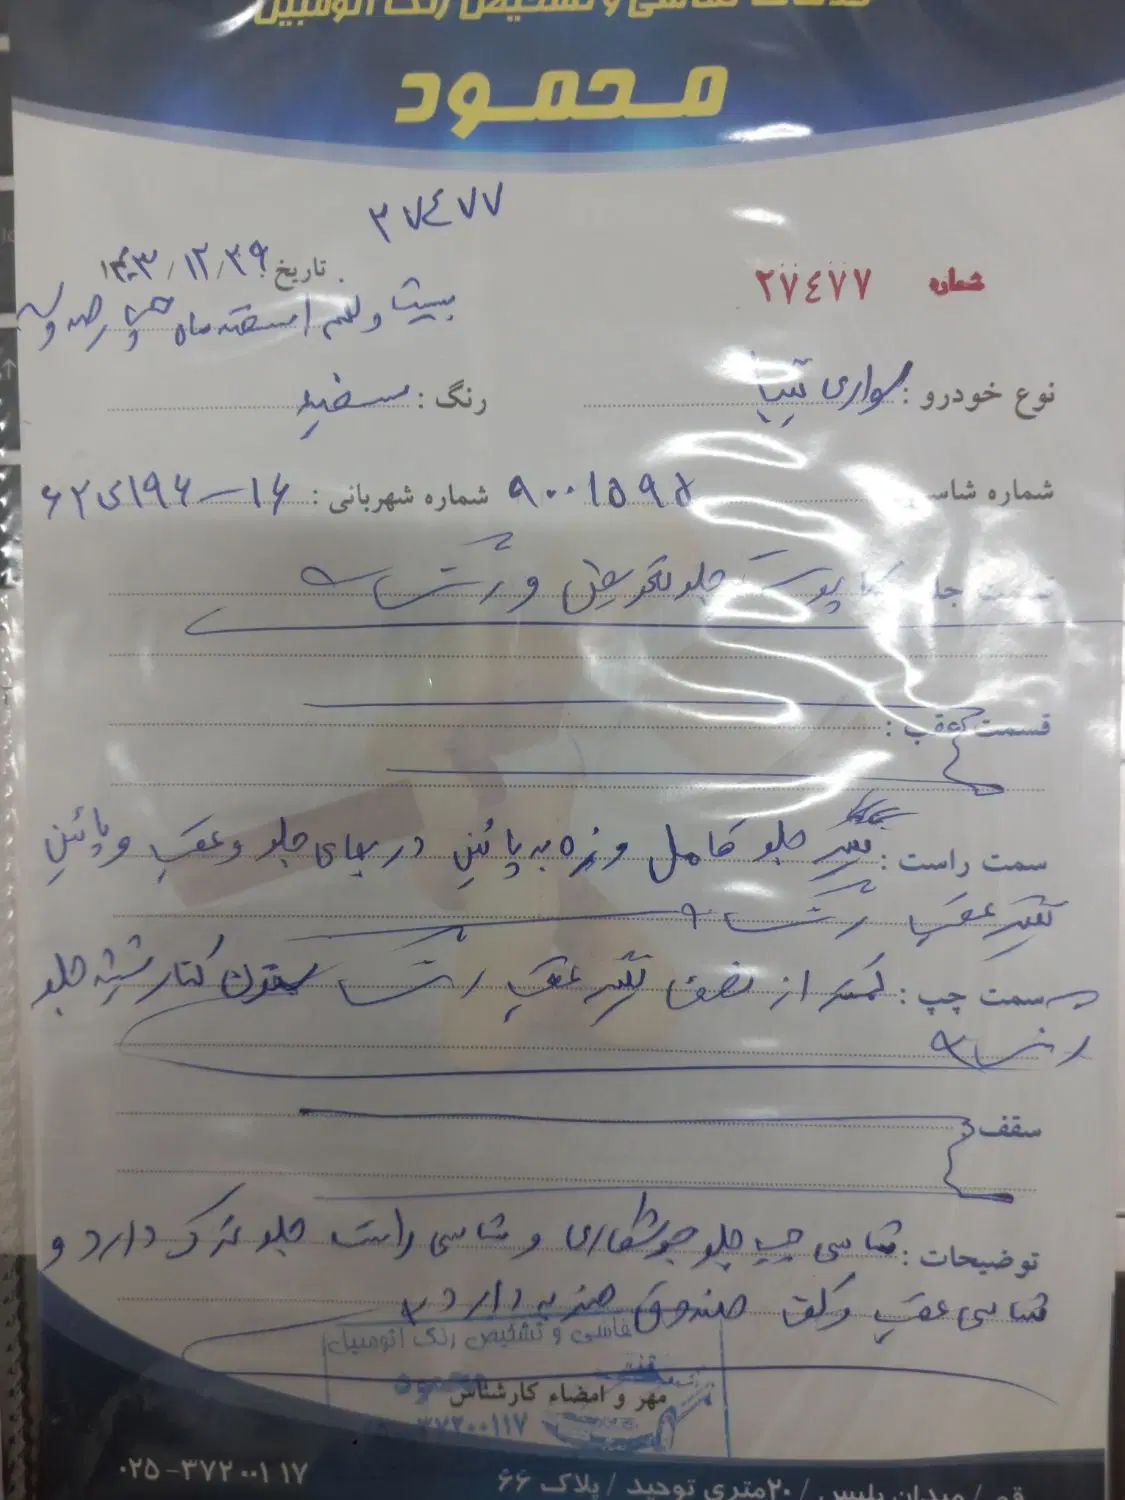 خدمات نقاشی و تشخیص رنگ اتومبیل
محمود
۲۷۴۷۷
شماره ۲۷۴۷۷
تاریخ: ۱۴۰۳/۱۲/۲۹
بیست و نهم اسفند ماه
نوع خودرو: سواری تیبا
رنگ: سفید
شماره شاسی ۹۰۰۱۵۹۵
شماره شهربانی: ۱۶ - ۱۹۶ی۶۲
قسمت جلو: کاپوت جلو تعویض و رنگ شده
قسمت عقب:
سمت راست: گلگیر جلو کامل و زه به پائین دربهای جلو و عقب و پائین
گلگیر عقب رنگ شده
سمت چپ: کمتر از نصف گلگیر عقب رنگ ستون کنار شیشه جلو
رنگ شده
سقف:
توضیحات: شاسی چپ جلو جوشکاری و شاسی راست جلو ترک دارد و
شاسی عقب و کف صندوق ضربه دارد
نقاشی و تشخیص رنگ اتومبیل
محمود
مهر و امضاء کارشناس
۳۷۲۰۰۱۱۷
۰۲۵-۳۷۲۰۰۱۱۷
قم / میدان پلیس / ۲۰متری توحید / پلاک ۶۶